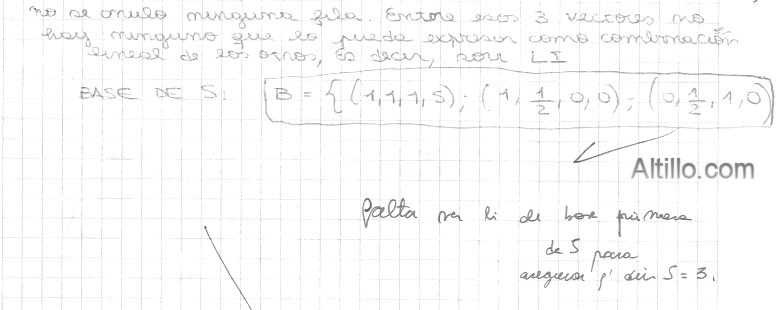 no se anuló ninguna fila. Entre esos 3 vectores no
hay ninguno que lo pueda expresar como combinación
lineal de los otros, es decir, son LI
BASE DE S: B = { (1,1,1,5); (1, 1/2, 0, 0); (0, 1/2, 1, 0)
Altillo.com
falta ver li de base primera
de S para
asegurar q' dim S = 3.